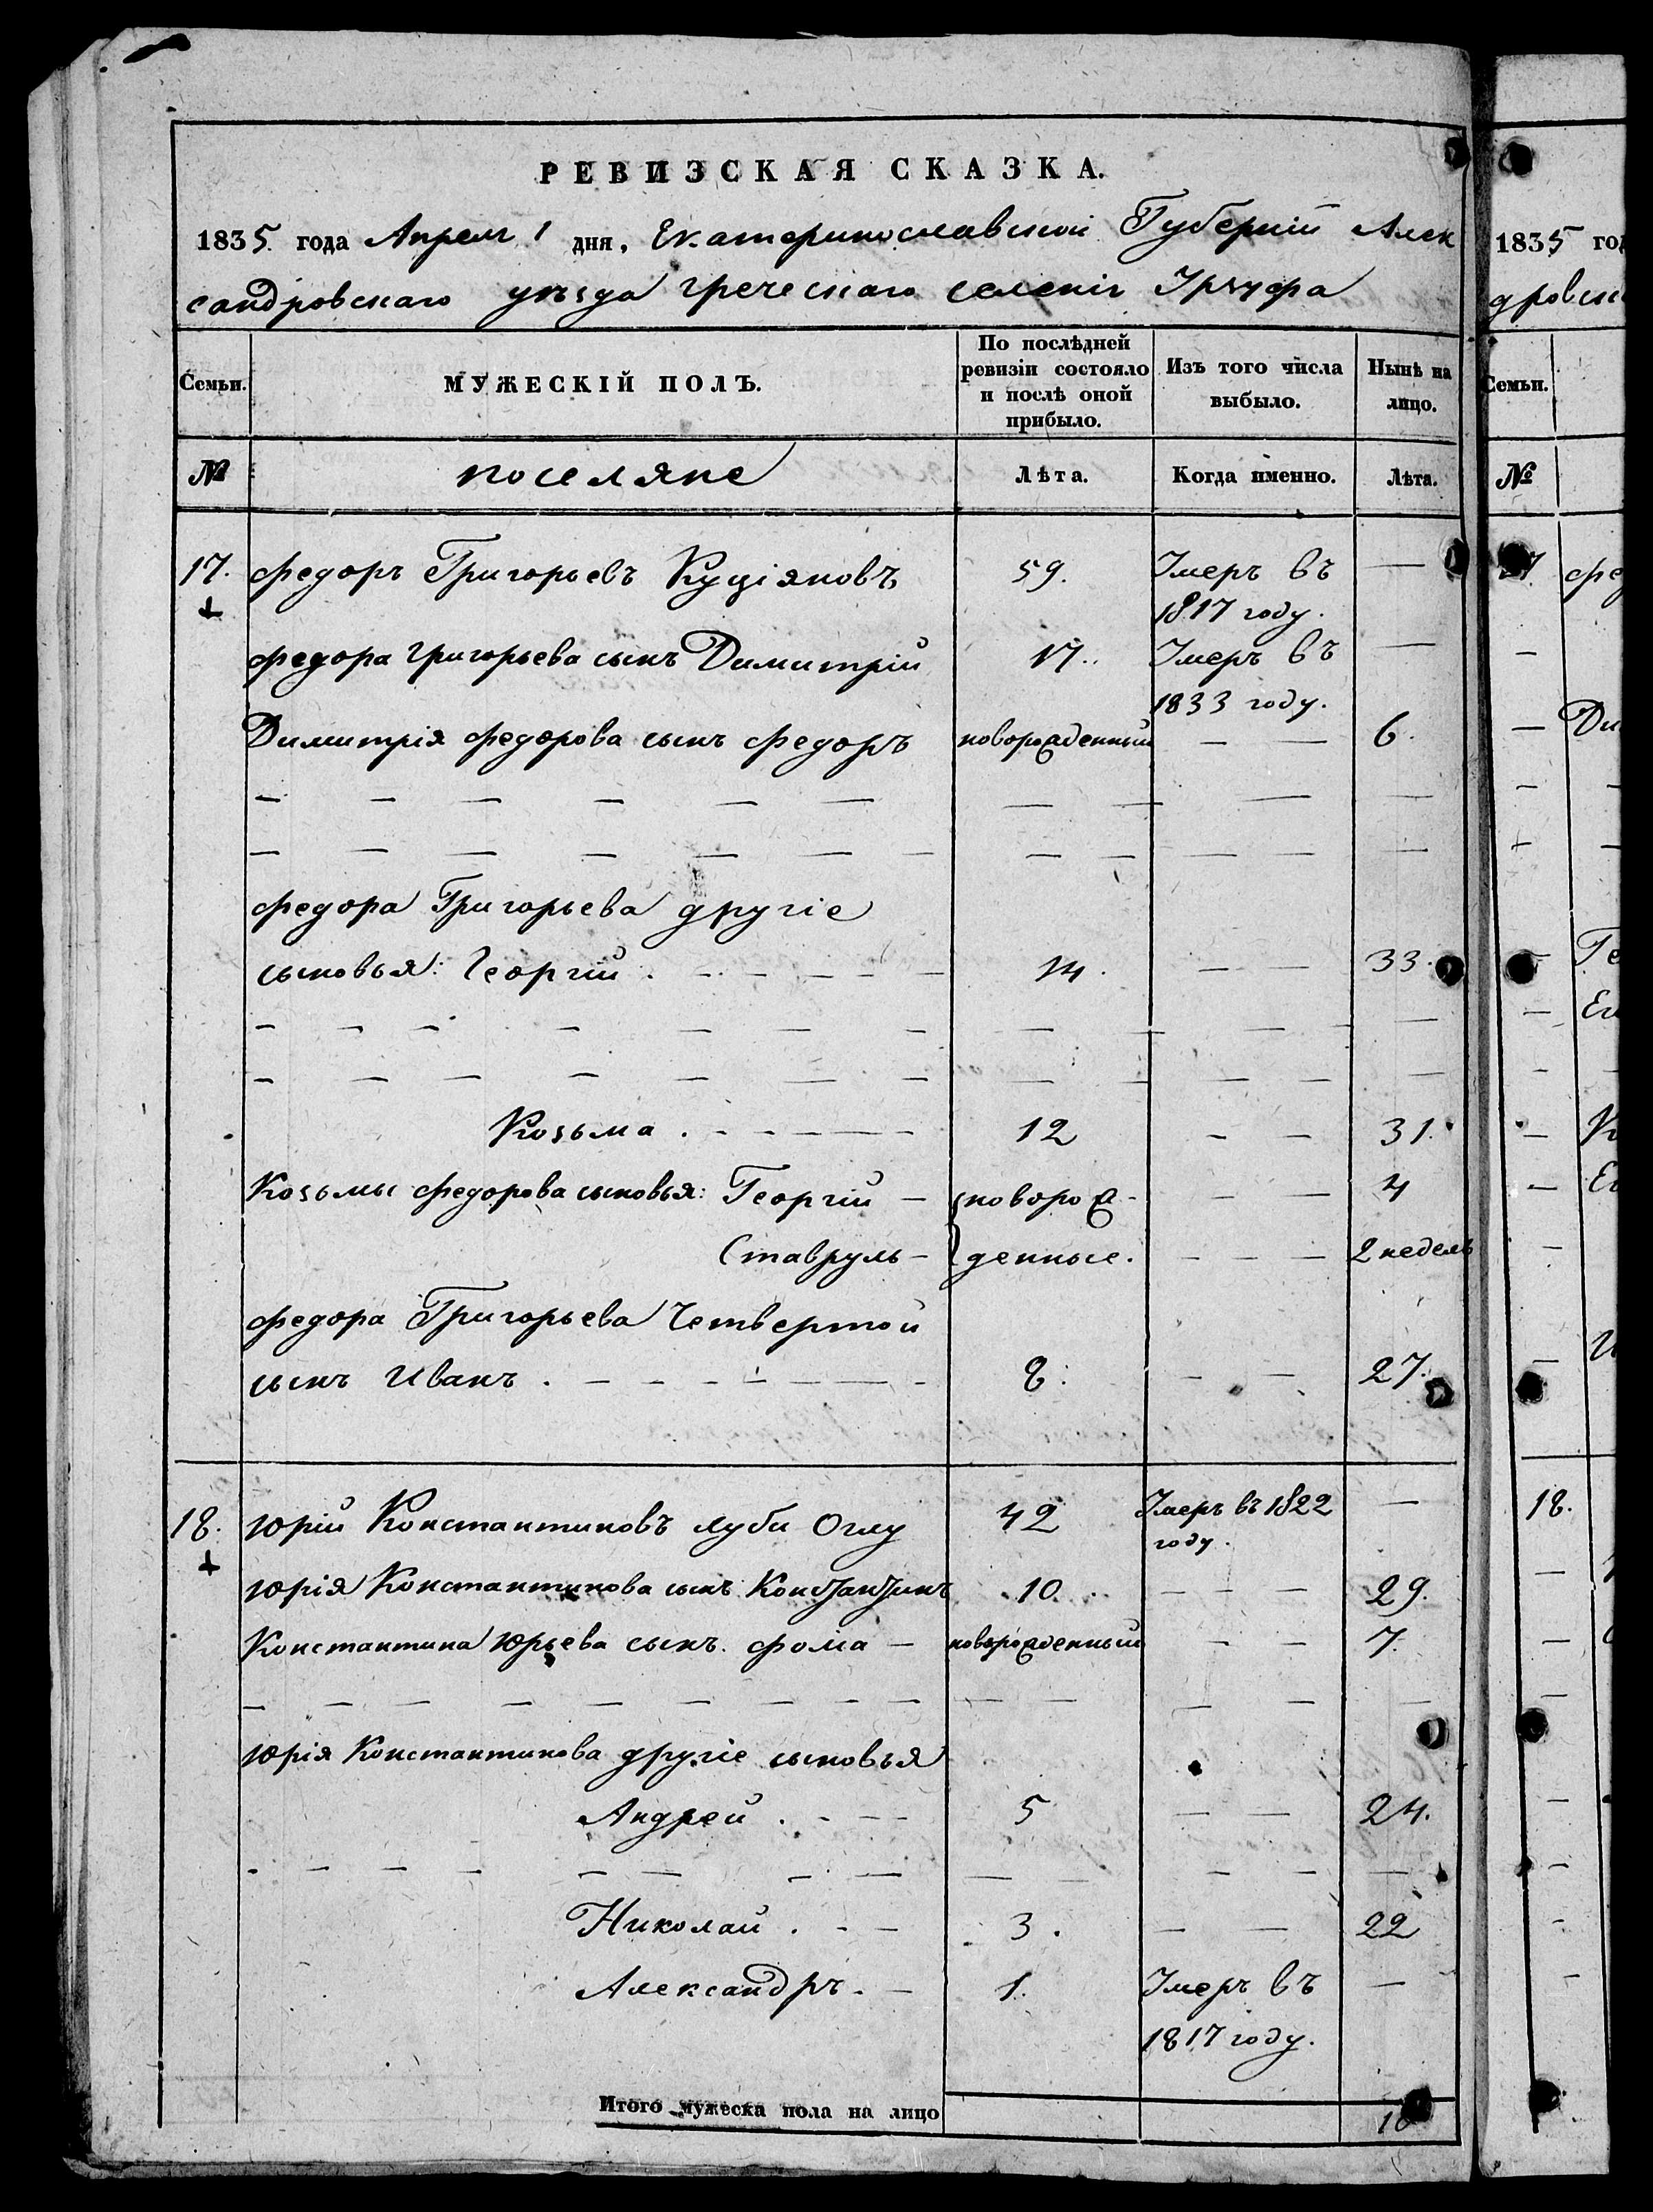 РЕВИЗСКАЯ СКАЗКА.
1835 года Апреля 1 дня, Екатеринославской Губерніи Алек
сандровскаго уѣзда греческаго селенія Урзуфа
Семьи. МУЖЕСКІЙ ПОЛЪ. По послѣдней ревизіи состояло и послѣ оной прибыло. Изъ того числа выбыло. Нынѣ на лицо.
№ поселяне Лѣта. Когда именно. Лѣта.
17. Федоръ Григорьевъ Куціяновъ 59. Умеръ въ —
1817 году.
Федора Григорьева сынъ Димитрій 17. Умеръ въ —
1833 году.
Димитрія Федорова сынъ Федоръ новорожденный — — 6.
Федора Григорьева другіе
сыновья: Георгій . - - - - - 14. — — 33.
Козьма . - - - - - 12 - - 31.
Козьмы Федорова сыновья: Георгій — новорож- - - 4
Ставруль — денные. - - - 2 недель
Федора Григорьева Четвертой
сынъ Иванъ . - - - - - - - 8. - - 27.
18. Юрій Константиновъ луби Оглу 42 Умеръ въ 1822 —
году.
Юрія Константинова сынъ Константинъ 10. - - - 29.
Константина Юрьева сынъ Фома — новорожденный - - 7.
Юрія Константинова другіе сыновья
Андрей . - - - 5 — — 24.
Николай . - - 3. — — 22
Александръ . - 1. Умеръ въ —
1817 году.
Итого мужеска пола на лицо 10
1835 год
дровск
Семьи.
№
Фед
Дим
Ге
18.